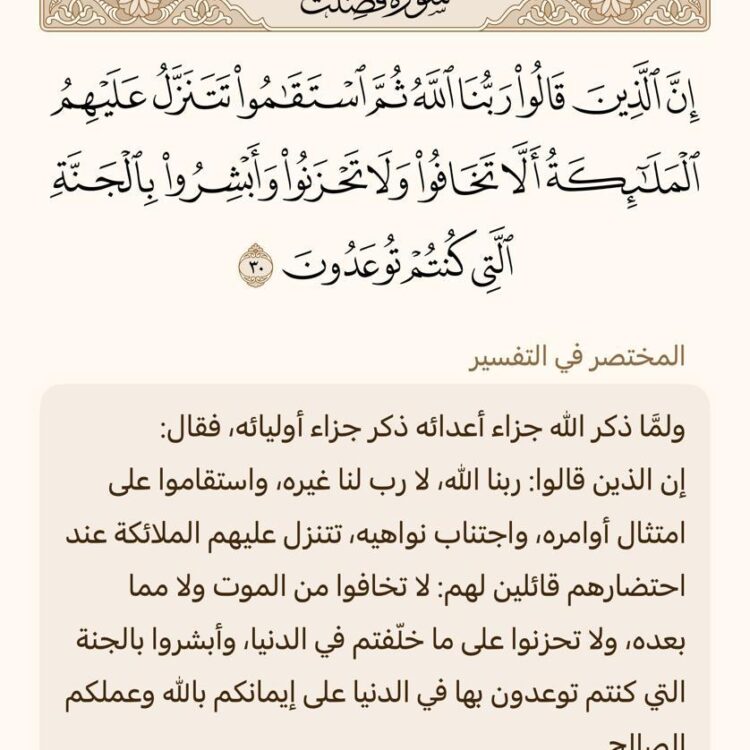 سورة فصلت
إِنَّ ٱلَّذِينَ قَالُوا۟ رَبُّنَا ٱللَّهُ ثُمَّ ٱسْتَقَـٰمُوا۟ تَتَنَزَّلُ عَلَيْهِمُ
ٱلْمَلَـٰٓئِكَةُ أَلَّا تَخَافُوا۟ وَلَا تَحْزَنُوا۟ وَأَبْشِرُوا۟ بِٱلْجَنَّةِ
ٱلَّتِى كُنتُمْ تُوعَدُونَ ٣٠
المختصر في التفسير
ولمَّا ذكر الله جزاء أعدائه ذكر جزاء أوليائه، فقال:
إن الذين قالوا: ربنا الله، لا رب لنا غيره، واستقاموا على
امتثال أوامره، واجتناب نواهيه، تتنزل عليهم الملائكة عند
احتضارهم قائلين لهم: لا تخافوا من الموت ولا مما
بعده، ولا تحزنوا على ما خلّفتم في الدنيا، وأبشروا بالجنة
التي كنتم توعدون بها في الدنيا على إيمانكم بالله وعملكم
الصالح